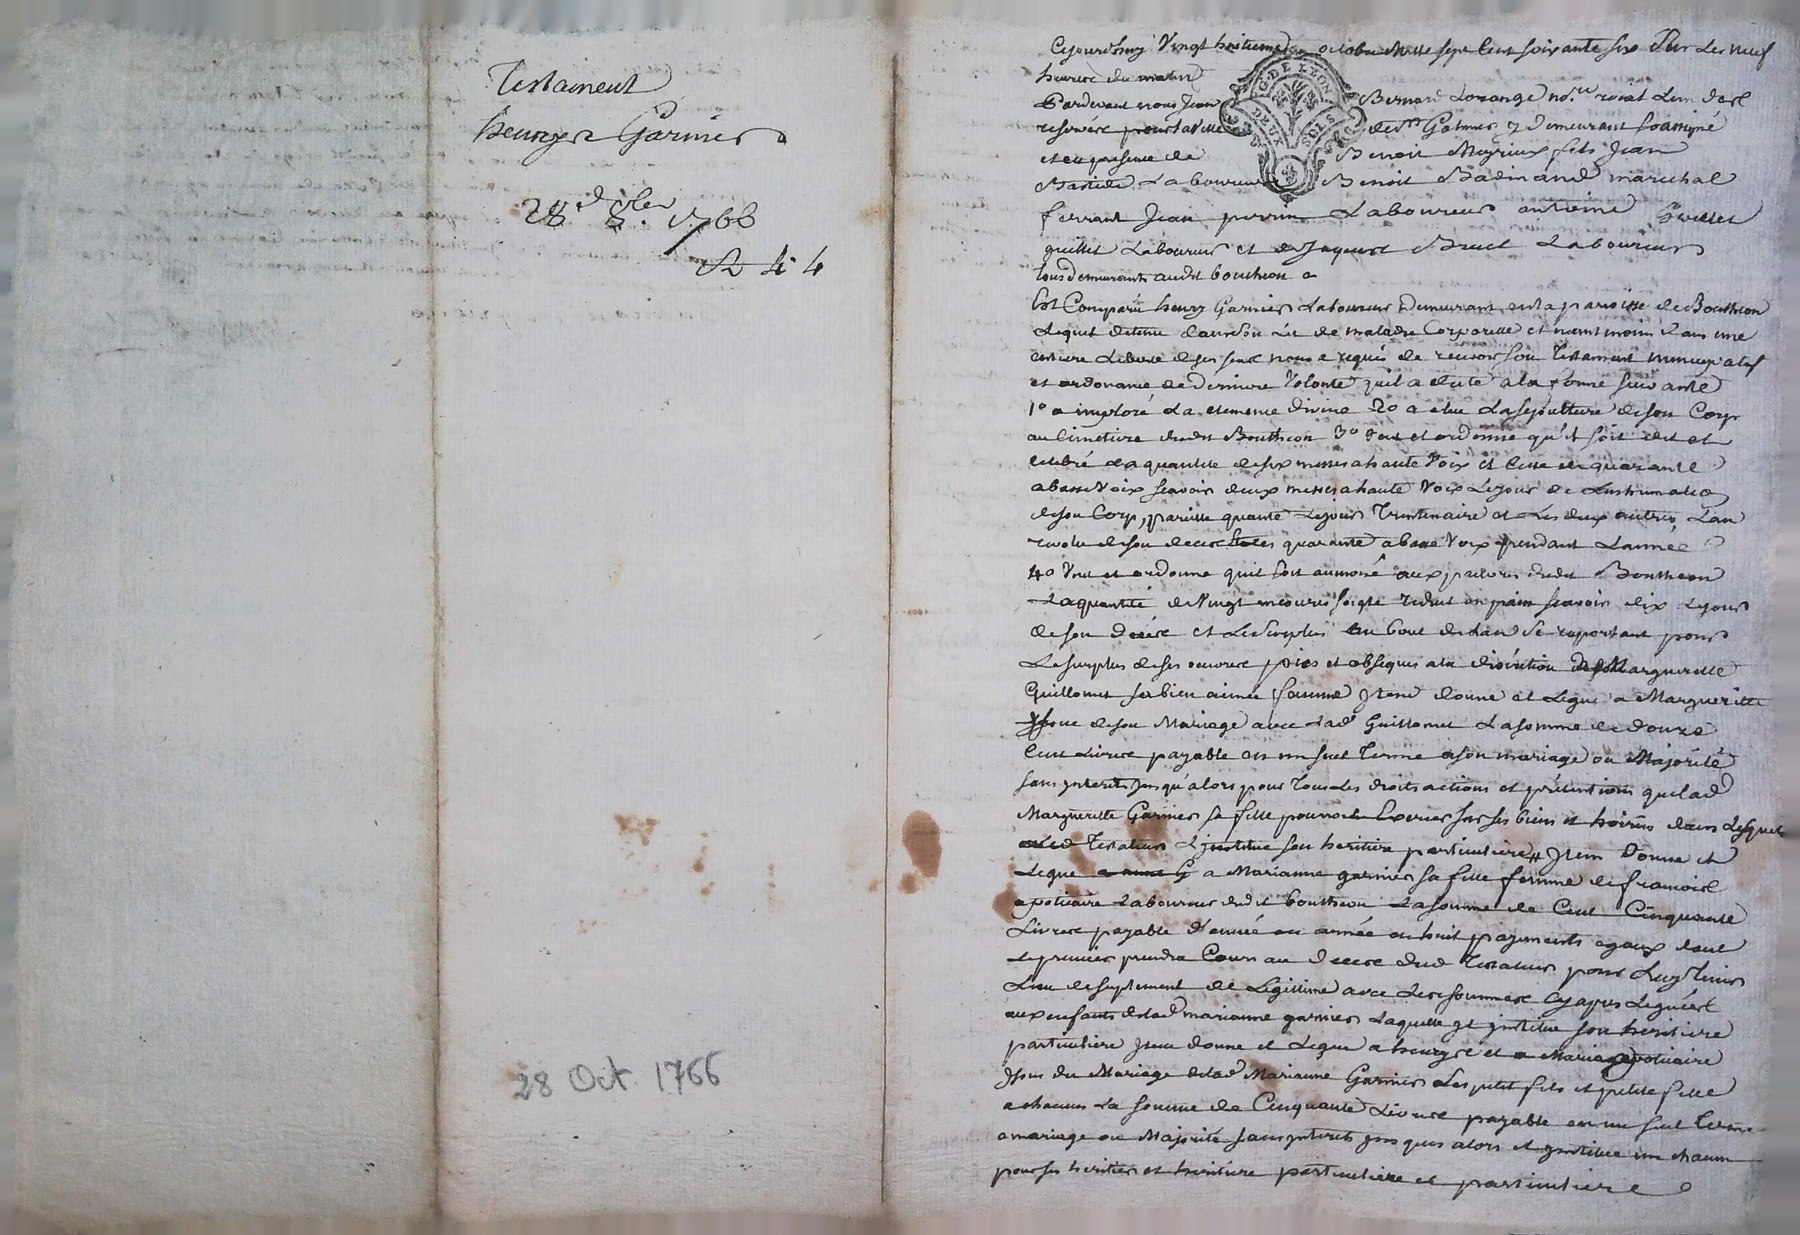 Testament
henry Garnier
28.e 8bre 1766
28 Oct. 1766
Cejourdhuy Vingt huitieme octobre Mille sept Cent soixante six sur Les neuf
heures du matin
G. DE LYON
DEUX SOLS
Pardevant nous Jean Bernard Lorange no.re roial
reservée pour la ville de St Galmier y demeurant soussigné
et en presence de Benoit Meyrieux fils Jean
Bastide Laboureur Benoit Badinand marechal
ferrant Jean perrin Laboureur antoine
guillet Laboureur et de Jaques Bruel Laboureur
tous demeurants audit bouthéon
Est Comparu henry Garnier Laboureur Demeurant en la paroisse de Bouthéon
Lequel detenu dans son lit de maladie Corporelle et neantmoins dans une
entiere Liberté de ses sens nous a requis de recevoir son Testament nuncupatif
et ordonance de Derniere Volonté quil a dicté a la forme suivante
1o a imploré La clemence divine 2o a elue La sepulture de son Corps
au Cimetiere dudit Bouthéon 3o veut et ordonne qu'il soit dit et
celebré La quantité de six messes a haute Voix et Celle de quarante
a basse Voix scavoir deux messes a haute Voix Le jour de Linhumation
de son Corp, pareille quantité Le jour Trentenaire et Les deux autres Lan
revolu de son deces et Les quarante a basse Voix pendant Lannée
4o Veut et ordonne quil soit aumoné aux pauvres dudit Bouthéon
La quantité de Vingt mesures seigle reduit en pain scavoir dix Le jour
de son Décés et Le surplus au bout de Lan Se raportant pour
Le surplus de ses oeuvres pies et obseques a la discretion de Margueritte
Guillomet sa bien aimée femme Item donne et Legue a Margueritte
issue de son Mariage avec Lad.e Guillomet La somme de douze
Cent Livres payable en un seul Terme a son mariage ou Majorité
sans interets jusqu'alors pour Tous Les droits actions et prétentions que lad.
Margueritte Garnier sa fille pourroit Exercer sur ses biens et hoiries dans Lesquels
Led Testateur L'institue son heritiere particuliere Item Donne et
Legue a Marianne garnier sa fille femme de francois
apoticaire Laboureur dudit bouthéon La somme de Cent Cinquante
Livres payable d'année en année en huit payements egaux dont
Le premier prendra Cours au Deces dud Testateur pour Luy Tenir
Lieu de suplement de Légitime avec Les sommes Cy apres Leguées
aux enfants de lad.e marianne garnier Laquelle il institue son heritiere
particuliere Item donne et Legue a henry et a Marie apoticaire
Issus du Mariage de lad.e Marianne Garnier Les petit fils et petite fille
a chacun La somme de Cinquante Livres payable en un seul Terme
a mariage ou Majorité sans interets jusques alors et institue un chacun
pour ses heritier et heritiere particuliere et particuliere